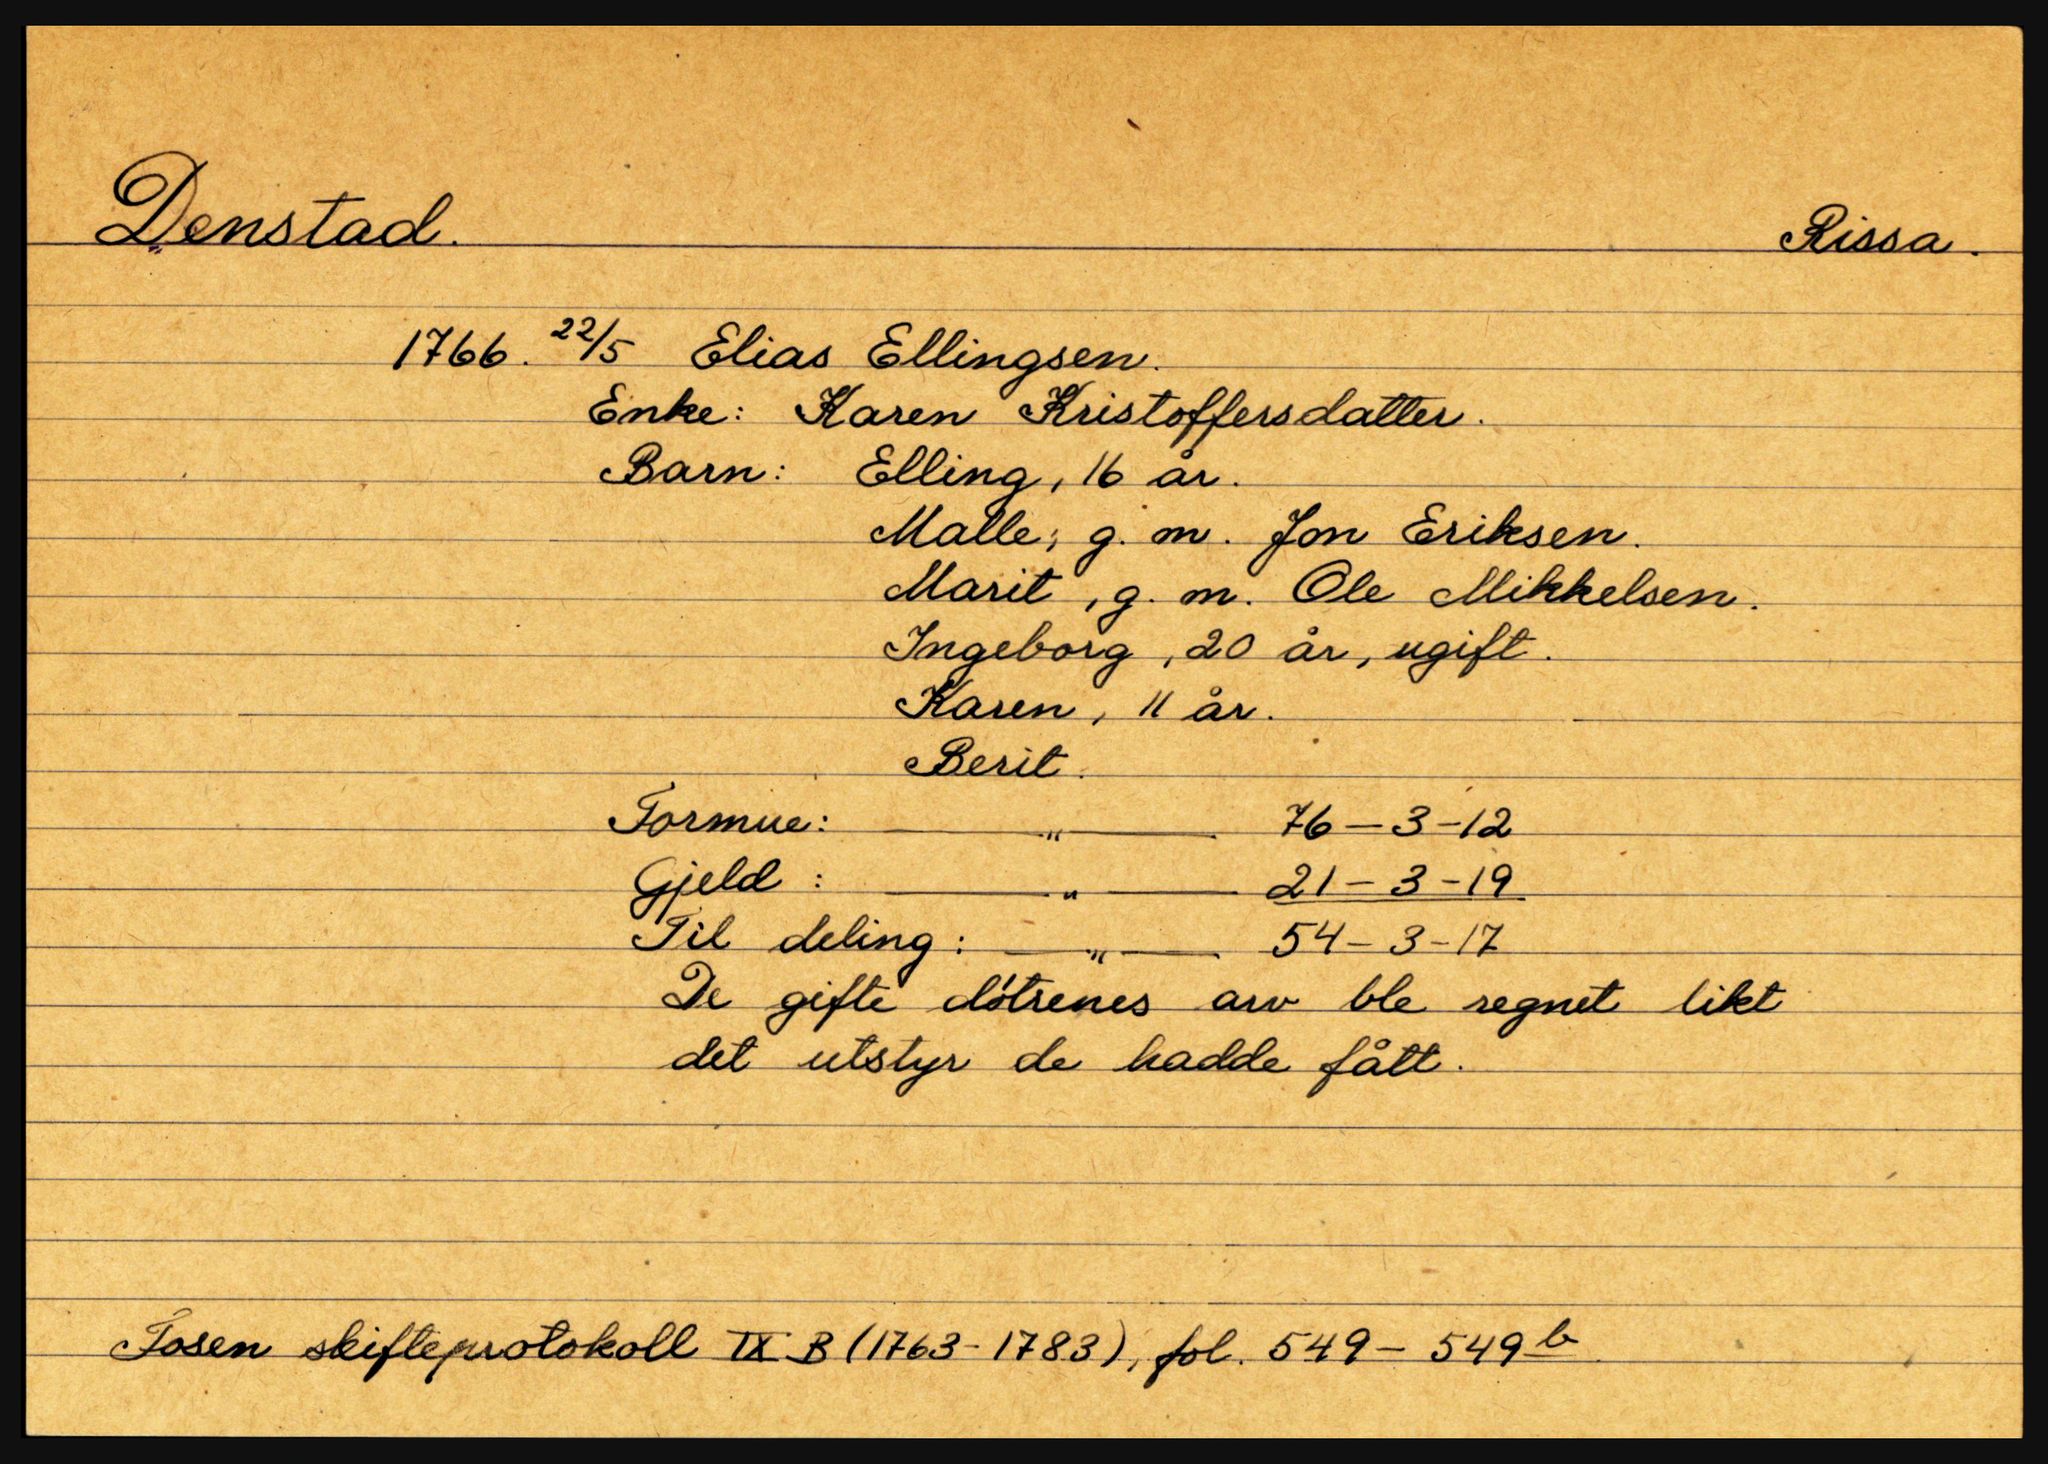 Denstad. Rissa.
1766. 22/5 Elias Ellingsen.
Enke: Karen Kristoffersdatter.
Barn: Elling, 16 år.
Malle, g. m. Jon Eriksen.
Marit, g. m. Ole Mikkelsen.
Ingeborg, 20 år, ugift.
Karen, 11 år.
Berit.
Formue: — „ — 76 – 3 – 12
Gjeld: — „ — 21 – 3 – 19
Til deling: — „ — 54 – 3 – 17
De gifte døtrenes arv ble regnet likt
det utstyr de hadde fått.
Fosen skifteprotokoll IX B (1763 - 1783), fol. 549 – 549 b